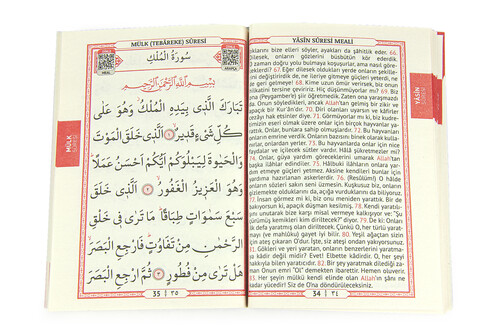 MÜLK (TEBÂREKE) SÛRESİ
سُورَةُ الْمُلْكِ
بِسْمِ اللّٰهِ الرَّحْمٰنِ الرَّحِيمِ
تَبَارَكَ الَّذِى بِيَدِهِ الْمُلْكُ وَهُوَ عَلٰى
كُلِّ شَىْءٍ قَدِيرٌ ۝١ اَلَّذِى خَلَقَ الْمَوْتَ
وَالْحَيٰوةَ لِيَبْلُوَكُمْ اَيُّكُمْ اَحْسَنُ عَمَلًا
وَهُوَ الْعَزِيزُ الْغَفُورُ ۝٢ اَلَّذِى خَلَقَ
سَبْعَ سَمٰوَاتٍ طِبَاقًا مَا تَرٰى فِى خَلْقِ
الرَّحْمٰنِ مِنْ تَفَاوُتٍ فَارْجِعِ الْبَصَرَ
هَلْ تَرٰى مِنْ فُطُورٍ ۝٣ ثُمَّ ارْجِعِ الْبَصَرَ
35 ٣٥
MÜLK
SÛRESİ
YÂSÎN SÛRESİ MEALİ
klarını bize elleri söyler, ayakları da şâhitlik eder. 66.
O zaman doğru yolu bulmaya koşuşurlar, ama nasıl göre-
67. Eğer dilesek oldukları yerde onların şekille-
ni değiştirirdik de, ne ileriye gitmeye güçleri yeterdi, ne
geri gelmeye! 68. Kime uzun ömür verirsek, biz onun
tersine çeviririz. Hiç düşünmüyorlar mı? 69. Biz
(Peygamber'e) şiir öğretmedik. Zaten ona yaraşmazdı
Onun söyledikleri, ancak Allah'tan gelmiş bir zikir ve
apaçık bir Kur'ân'dır. 70. Diri olanları uyarsın ve kâfirler
azâbı hak etsinler diye. 71. Görmüyorlar mı ki, biz kudre-
timizin eseri olmak üzere onlar için birçok hayvanlar ya-
rattık. Onlar, bunlara sahip olmuşlardır. 72. Bu hayvanları
onların emrine verdik. Onlardan bir kısmı binekleridir,
onlardan yerler. 73. Bu hayvanlarda onlar için nice
faydalar ve içilecek sütler vardır. Hâlâ şükretmezler mi?
74. Onlar, güya yardım göreceklerini umarak Allah'tan
başka ilahlar edindiler. 75. Hâlbuki ilahların onlara yar-
dım etmeye güçleri yetmez. Aksine kendileri bunlar için
yardıma hazırlanan askerlerdir. 76. (Resûlüm!) O hâlde
onların sözleri sakın seni üzmesin. Kuşkusuz biz, onların
gizlemekte olduklarını da, açığa vurduklarını da biliyoruz.
77. İnsan görmez mi ki, biz onu meniden yarattık. Bir de
bakıyorsun ki, apaçık düşman kesilmiş. 78. Kendi yaratılı-
şını unutarak bize karşı misal vermeye kalkışıyor ve: "Şu
çürümüş kemikleri kim diriltecek?" diyor. 79. De ki: Onları
ilk defa yaratmış olan diriltecek. Çünkü O, her türlü yarat-
mayı (ve mahlûku) gayet iyi bilir. 80. Yeşil ağaçtan sizin
için ateş çıkaran O'dur. İşte, siz ateşi ondan yakıyorsunuz.
81. Gökleri ve yeri yaratan, onların benzerlerini yaratma-
ya kâdir değil midir? Evet! Elbette kâdirdir. O, her şeyi
hakkıyla bilen yaratıcıdır. 82. Bir şey yaratmak dilediği za-
man Onun emri "Ol" demekten ibarettir. Hemen oluverir.
83. Her şeyin mülkü kendi elinde olan Allah'ın şânı ne
kadar yücedir! Siz de O'na döndürüleceksiniz.
34 ٣٤
YÂSÎN
SÛRESİ